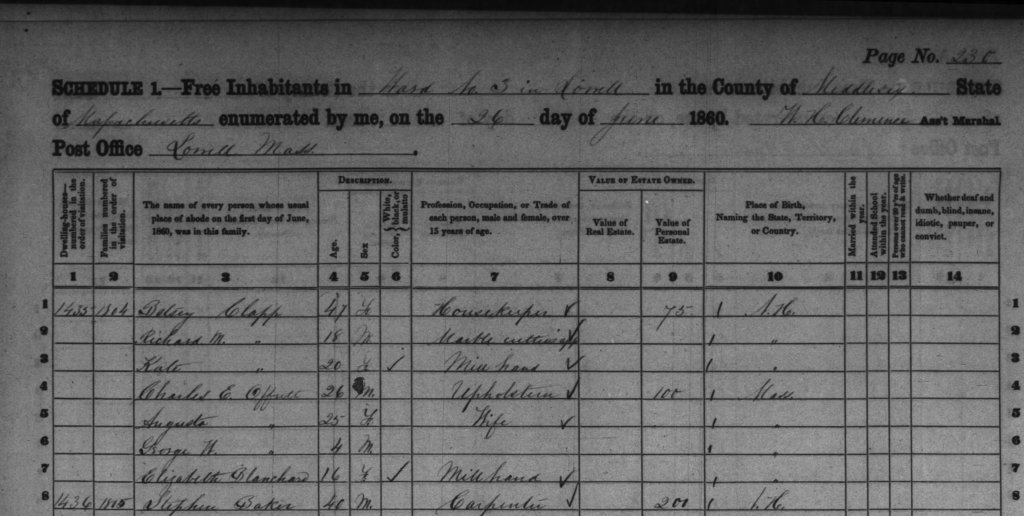 Page No. 230
SCHEDULE 1.—Free Inhabitants in Ward No. 3 in Lowell in the County of Middlesex State
of Massachusetts enumerated by me, on the 26 day of June 1860. W. H. Clemence Ass't Marshal
Post Office Lowell Mass.
Dwelling-houses—numbered in the order of visitation.
Families numbered in the order of visitation.
The name of every person whose usual place of abode on the first day of June, 1860, was in this family.
DESCRIPTION.
Age.
Sex
Color, White, black, or mulatto
Profession, Occupation, or Trade of each person, male and female, over 15 years of age.
VALUE OF ESTATE OWNED.
Value of Real Estate.
Value of Personal Estate.
Place of Birth, Naming the State, Territory, or Country.
Married within the year.
Attended School within the year.
Persons over 20 y'rs of age who cannot read & write.
Whether deaf and dumb, blind, insane, idiotic, pauper, or convict.
1 2 3 4 5 6 7 8 9 10 11 12 13 14
1 1435 1804 Betsey Clapp 47 F Housekeeper 75 N.H. 1
2 Richard M. " 18 M. Marble cutting " 2
3 Kate " 20 F Mill hand " 3
4 Charles E. 26 M. Upholsterer 100 Mass. 4
5 Augusta " 25 F Wife " 5
6 George W. " 4 M. " 6
7 Elizabeth Blanchard 16 F Mill hand " 7
8 1436 1805 Stephen Baker 40 M. Carpenter 200 N.H. 8